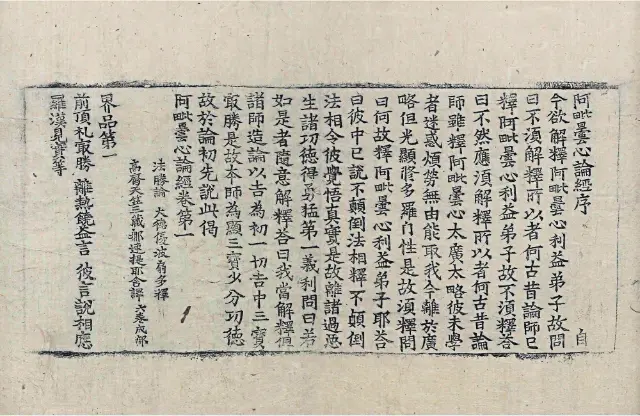 阿毗曇心論經序 自
今欲解釋阿毗曇心利益弟子故問
曰不湏解釋所以者何古昔論師已
釋阿毗曇心利益弟子故不湏釋荅
曰不然應湏解釋所以者何古昔論
師雖釋阿毗曇心太廣太略彼未學
者迷惑煩勞無由能取我今離於廣
略但光顯修多羅門性是故湏釋問
曰何故釋阿毗曇心利益弟子耶荅
曰彼中已說不顛倒法相釋不顛倒
法相令彼覺悟真實是故離諸過惡
生諸功德得勇猛第一義利問曰若
如是者隨意解釋荅曰我當解釋但
諸師造論以吉為初一切吉中三寶
冣勝是故本師為顯三寶少分功德
故於論初先說此偈
阿毗曇心論經卷第一
法勝論 大德優波扇多釋
高齊天竺三藏那連提耶舍譯 六卷成部
界品第一
前頂礼冣勝 離熱饒益言 彼言說相應
羅漢見實等